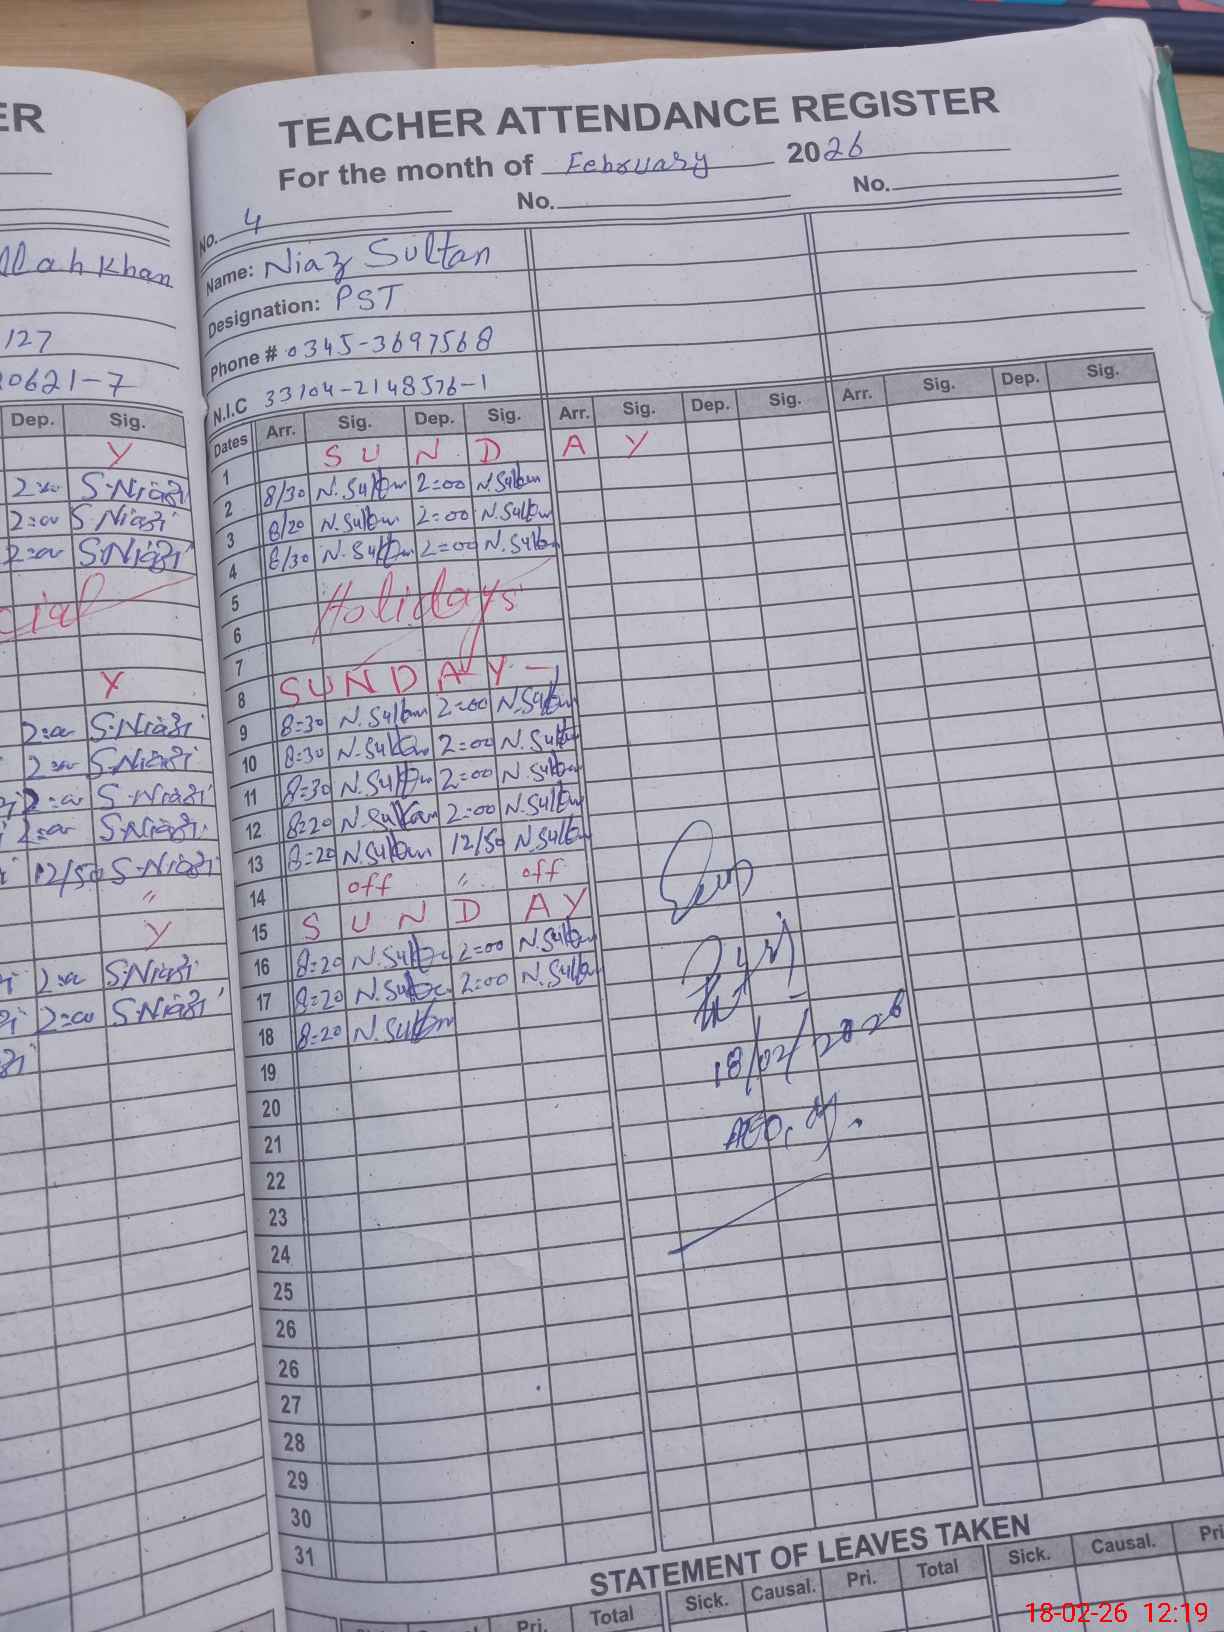 ER
TEACHER ATTENDANCE REGISTER
For the month of February 2026
No. 4 No. No.
llah Khan
Name: Niaz Sultan
Designation: PST
127
Phone # 0345-3697568
0621-7
N.I.C 33104-2148576-1
Dep. Sig.
Dates Arr. Sig. Dep. Sig. Arr. Sig. Dep. Sig. Arr. Sig. Dep. Sig.
Y
1 S U N D A Y
2:00 S.Niazi
2 8/30 N.Sultan 2=00 N.Sultan
2:00 S.Niazi
3 8/20 N.Sultan 2=00 N.Sultan
2:00 S.Niazi
4 8/30 N.Sultan 2=00 N.Sultan
cial
5 Holidays
6
7
Y
8 S U N D A Y
2:00 S.Niazi
9 8=30 N.Sultan 2=00 N.Sultan
2:00 S.Niazi
10 8=30 N.Sultan 2=00 N.Sultan
2:00 S.Niazi
11 8=30 N.Sultan 2=00 N.Sultan
2:00 S.Niazi
12 8=20 N.Sultan 2=00 N.Sultan
12/50 S.Niazi
13 8=20 N.Sultan 12/50 N.Sultan
"
14 off " off
Y
15 S U N D A Y
2:00 S.Niazi
16 8=20 N.Sultan 2=00 N.Sultan
2:00 S.Niazi
17 8=20 N.Sultan 2=00 N.Sultan
18 8=20 N.Sultan
18/02/2026
AEO
19
20
21
22
23
24
25
26
26
27
28
29
30
31
STATEMENT OF LEAVES TAKEN
Pri. Total Sick. Causal. Pri. Total Sick. Causal. Pri
18-02-26 12:19